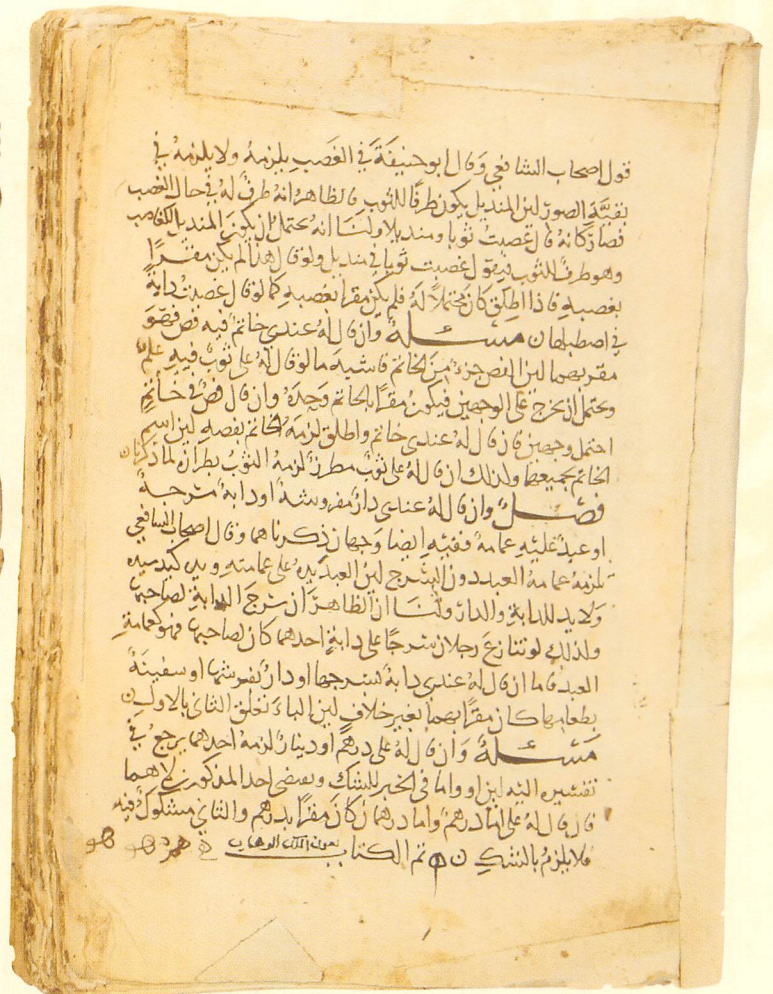 قول اصحاب الشافعي وقال ابو حنيفة في الغصب يلزمه ولا يلزمه في
بقية الصور لان المنديل يكون ظرفا للثوب فالظاهر انه ظرف له في حال الغصب
فصار كانه قال غصبت ثوبا ومنديلا ولنا انه يحتمل ان يكون المنديل للغاصب
وهو ظرف للثوب فيقول غصبت ثوبا في منديل ولو قال هذا لم يكن مقرا
بغصبه فاذا اطلق كان محتملا له فلم يكن مقرا بغصبه كما لو قال غصبت دابة
في اصطبلها ن مسئلة وان قال له عندي خاتم فيه فص فهو
مقر بهما لان الفص جزء من الخاتم فاشبه ما لو قال له علي ثوب فيه علم
ويحتمل ان يخرج على الوجهين فيكون مقرا بالخاتم وحده وان قال فص في خاتم
احتمل وجهين فان قال له عندي خاتم واطلق لزمه الخاتم بفصه لان اسم
الخاتم يجمعهما ولذلك ان قال له علي ثوب مطرز لزمه الثوب بطرازه لما ذكرنا ن
فصل وان قال له عندي دار مفروشة او دابة مسرجة
او عبد عليه عمامة ففيه ايضا وجهان ذكرناهما وقال اصحاب الشافعي
تلزمه عمامة العبد دون السرج لان العبد يده على عمامته ويده كيد سيده
ولا يد للدابة والدار ولنا ان الظاهر ان سرج الدابة لصاحبها
ولذلك لو تنازع رجلان سرجا على دابة احدهما كان لصاحبها فهو كعمامة
العبد فاما ان قال له عندي دابة بسرجها او دار بفرشها او سفينة
بطعامها كان مقرا بهما بغير خلاف لان الباء تعلق الثاني بالاول ن
مسئلة وان قال له علي درهم او دينار لزمه احدهما يرجع في
تفسيره اليه لان او واما في الخبر للشك وتقتضي احد المذكورين لاهما
فان قال له علي اما درهم واما درهمان كان مقرا بدرهم والثاني مشكوك فيه
فلا يلزم بالشك ن تم الكتاب بعون الملك الوهاب